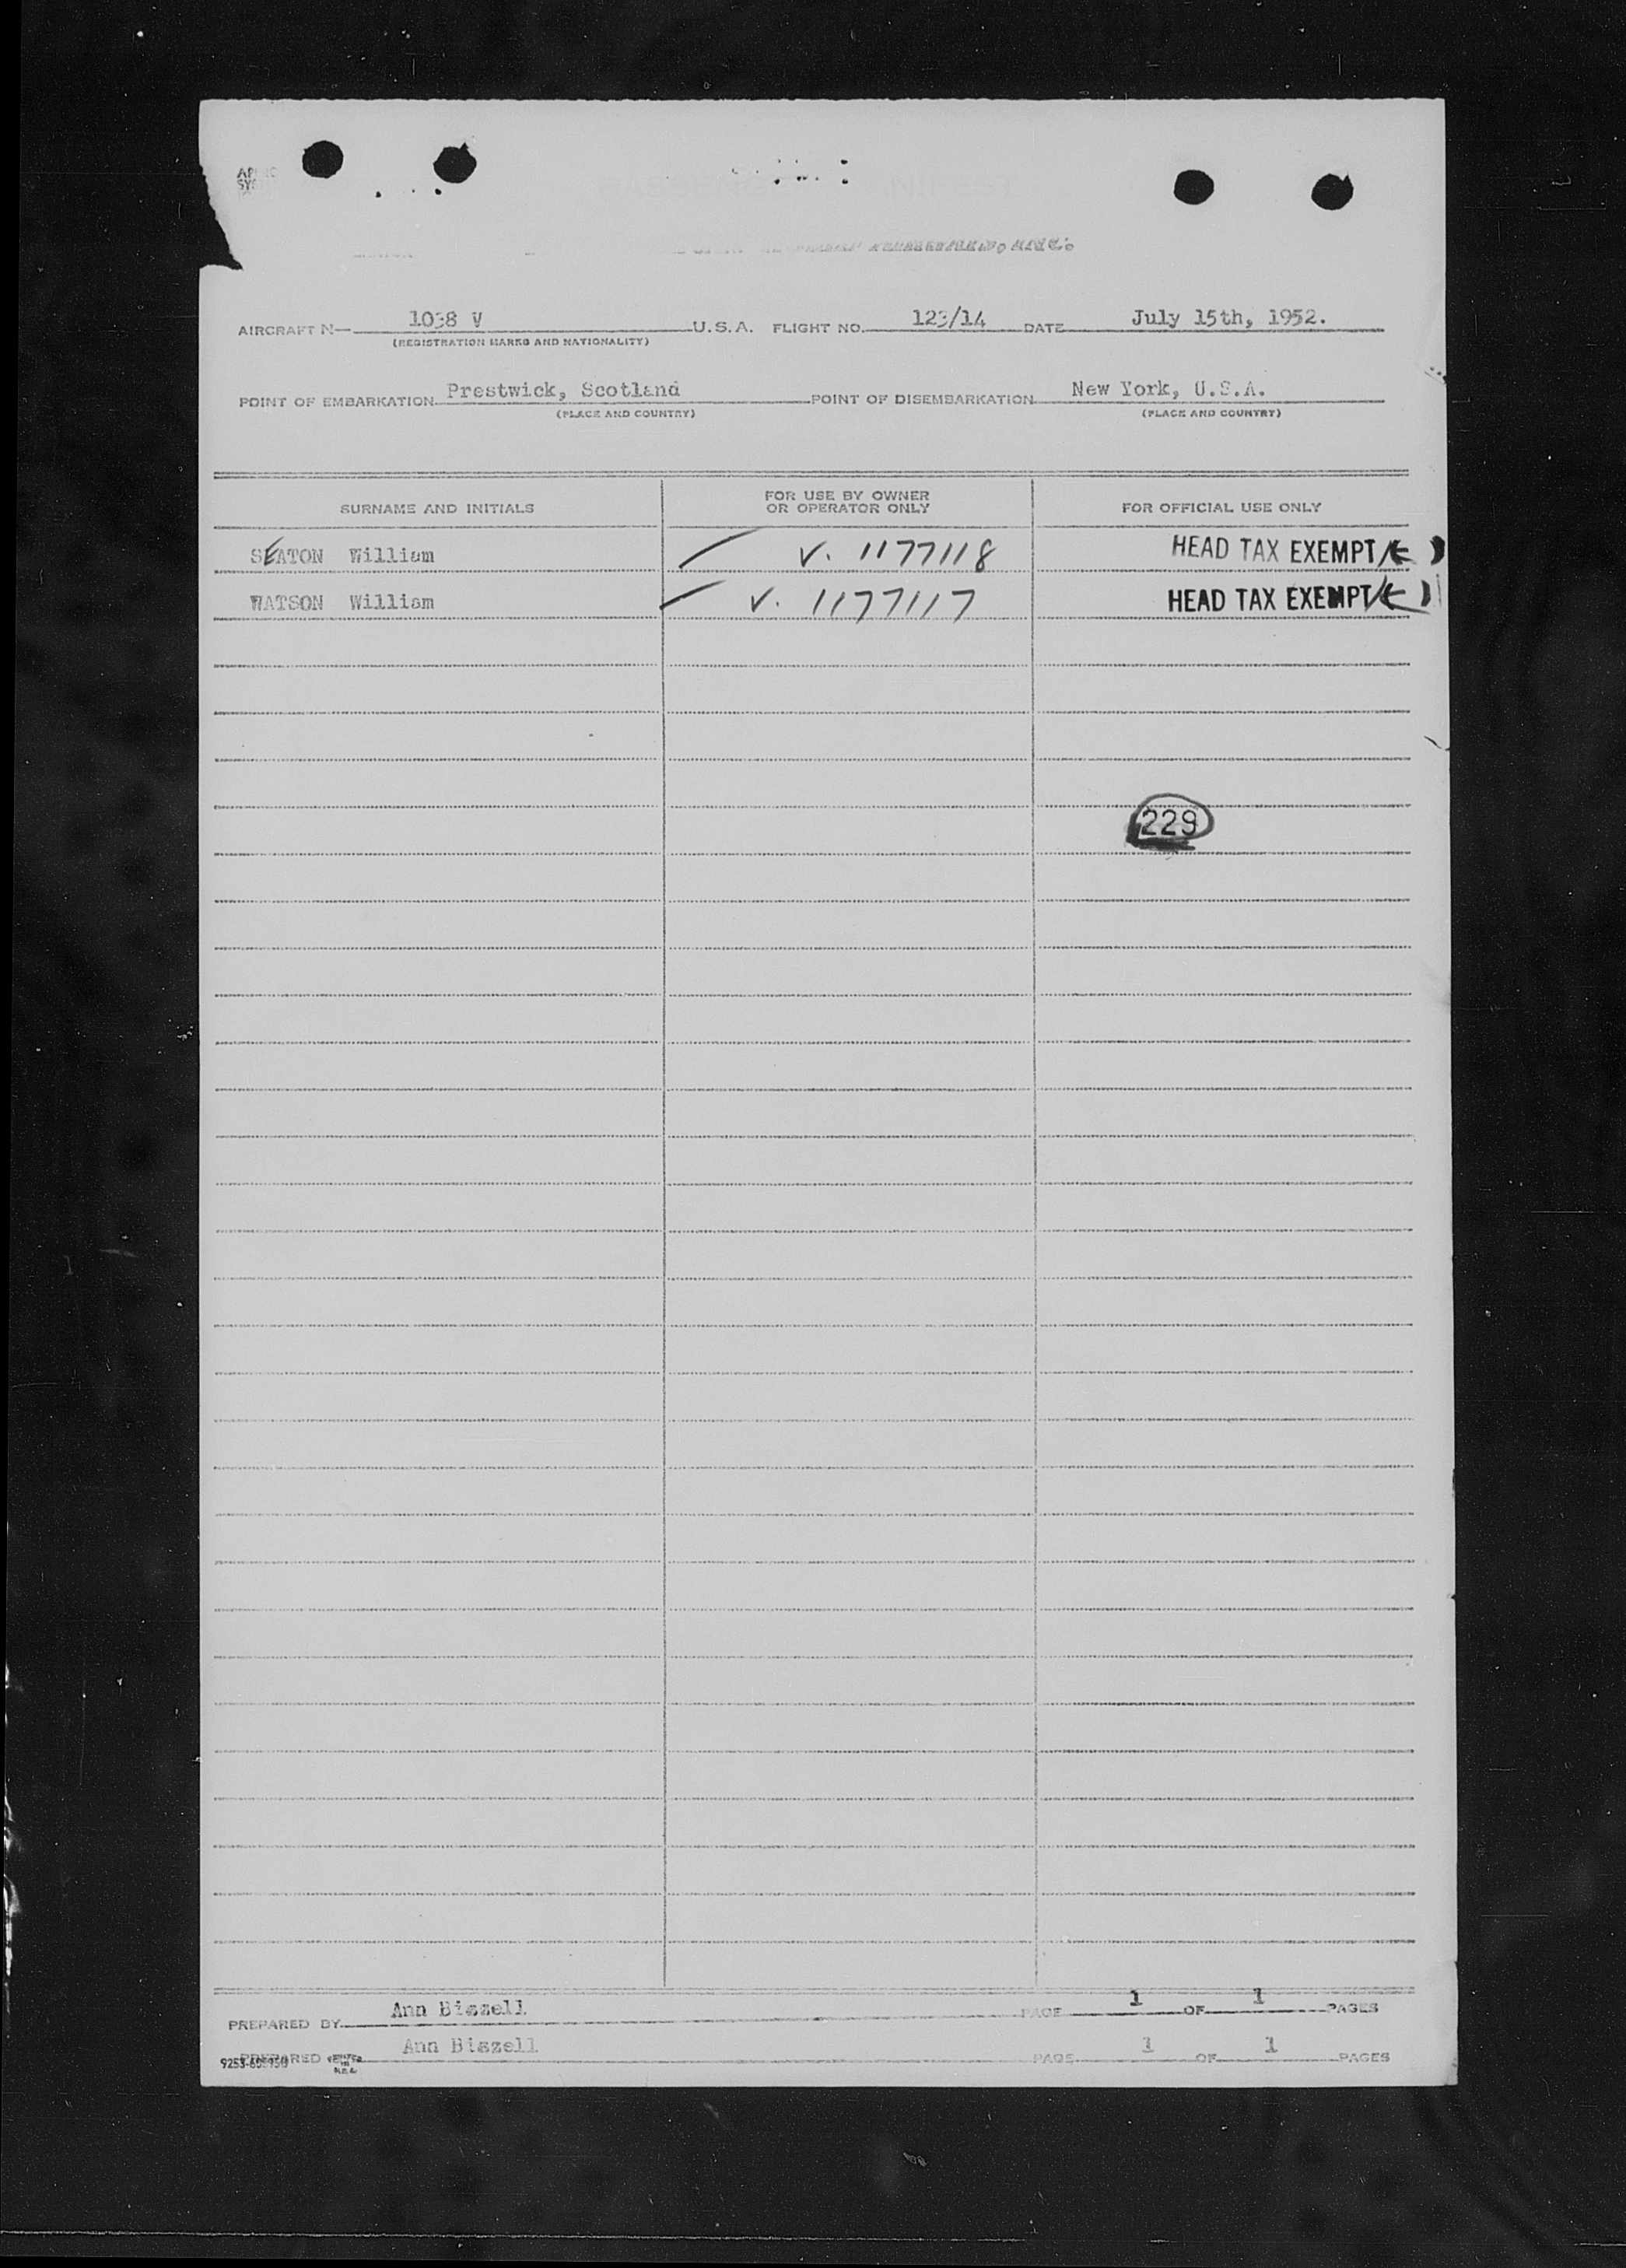 INC.
AIRCRAFT N— 1038 V U.S.A. FLIGHT NO. 123/14 DATE July 15th, 1952.
(REGISTRATION MARKS AND NATIONALITY)
POINT OF EMBARKATION Prestwick, Scotland POINT OF DISEMBARKATION New York, U.S.A.
(PLACE AND COUNTRY) (PLACE AND COUNTRY)
SURNAME AND INITIALS FOR USE BY OWNER OR OPERATOR ONLY FOR OFFICIAL USE ONLY
SEATON William V. 1177118 HEAD TAX EXEMPT
WATSON William V. 1177117 HEAD TAX EXEMPT
229
PREPARED BY Ann Biszell PAGE 1 OF 1 PAGES
PREPARED Ann Biszell PAGE 1 OF 1 PAGES